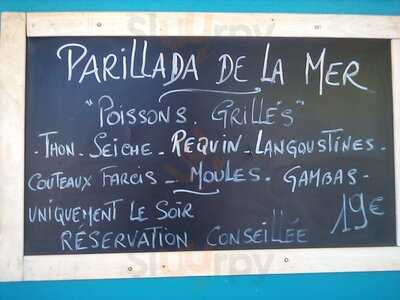 PARILLADA DE LA MER
"POISSONS. GRILLÉS"
- THON - SEICHE - REQUIN - LANGOUSTINES -
COUTEAUX FARCIS - MOULES - GAMBAS -
UNIQUEMENT LE SOIR 19€
RÉSERVATION CONSEILLÉE